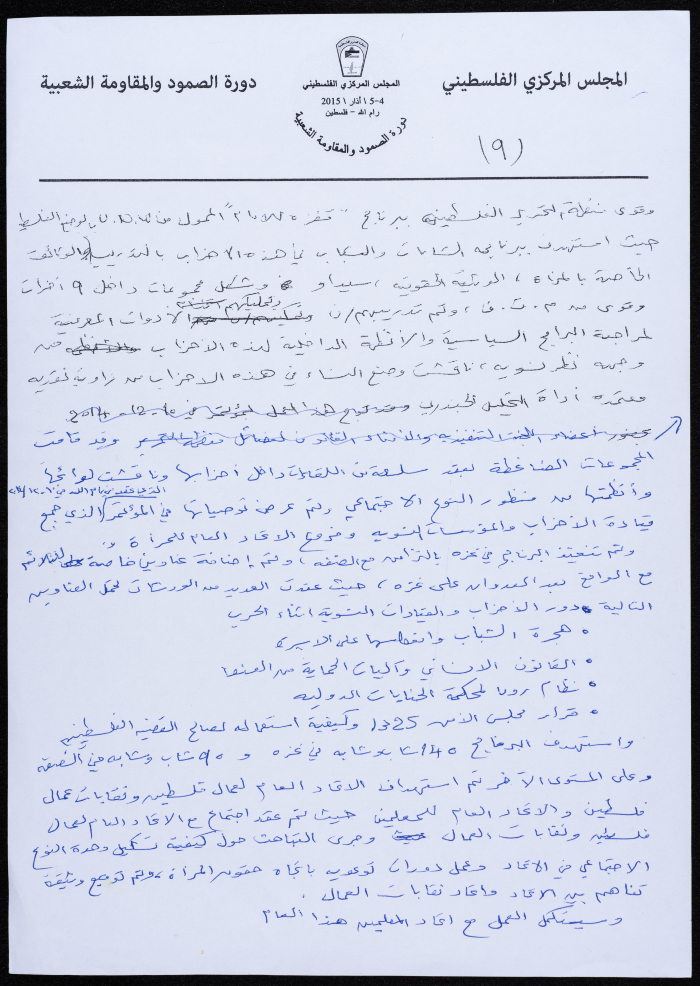 المجلس المركزي الفلسطيني
المجلس المركزي الفلسطيني
4-5 \ آذار \ 2015
رام الله - فلسطين
دورة الصمود والمقاومة الشعبية
دورة الصمود والمقاومة الشعبية
(٩)
وقوى منظمة التحرير الفلسطينية ببرنامج " قفزة للأمام" الممول من
حيث استهدف برنامج الشابات والشباب في هذه الاحزاب بالتدريب والوثائق
الخاصة بالمرأة ، الوثيقة الحقوقية ، سيداو وشكل مجموعات داخل 9 أحزاب
وقوى من م.ت.ف ، وتم تدريبهم/ن وتمليكهم الأدوات المعرفية
لمراجعة البرامج السياسية والأنظمة الداخلية لهذه الأحزاب من
وجهة نظر نسوية ، ناقشت وضع النساء في هذه الاحزاب من زاوية نقدية
معتمدة أداة التحليل الجندري
وقد قامت
المجموعات الضاغطة بعقد سلسلة من اللقاءات داخل أحزابها وناقشت لوائحها
وأنظمتها من منظور النوع الاجتماعي وتم عرض توصياتها في المؤتمر الذي جمع
قيادة الأحزاب والمؤسسات النسوية وفروع الاتحاد العام للمرأة
وتم تنفيذ البرنامج في غزه بالتزامن مع الضفه ، وتم إضافة عناوين خاصة للتلائم
مع الواقع بعد العدوان على غزه ، حيث عقدت العديد من الورشات تحمل العناوين
التالية دور الأحزاب والقيادات النسوية اثناء الحرب
• هجرة الشباب وانعكاسها على الاسرة
• القانون الانساني وآليات الحماية من العنف
• نظام روما لمحكمة الجنايات الدوليه
• قرار مجلس الأمن 1325 وكيفية استعماله لصالح القضية الفلسطينية
واستهدف البرنامج 140 شاب وشابه في غزه و 90 شاب وشابه في الضفه
وعلى المستوى الآخر تم استهداف الاتحاد العام لعمال فلسطين ونقابات عمال
فلسطين والاتحاد العام للمعلمين حيث تم عقد اجتماع مع الاتحاد العام لعمال
فلسطين ونقابات العمال وجرى التباحث حول كيفية تشكيل وحدة النوع
الاجتماعي في الاتحاد وعمل دورات توعويه باتجاه حقوق المرأة ، وتم توقيع وثيقة
تفاهم بين الاتحاد واتحاد نقابات العمال .
وسيستكمل العمل مع اتحاد المعلمين هذا العام